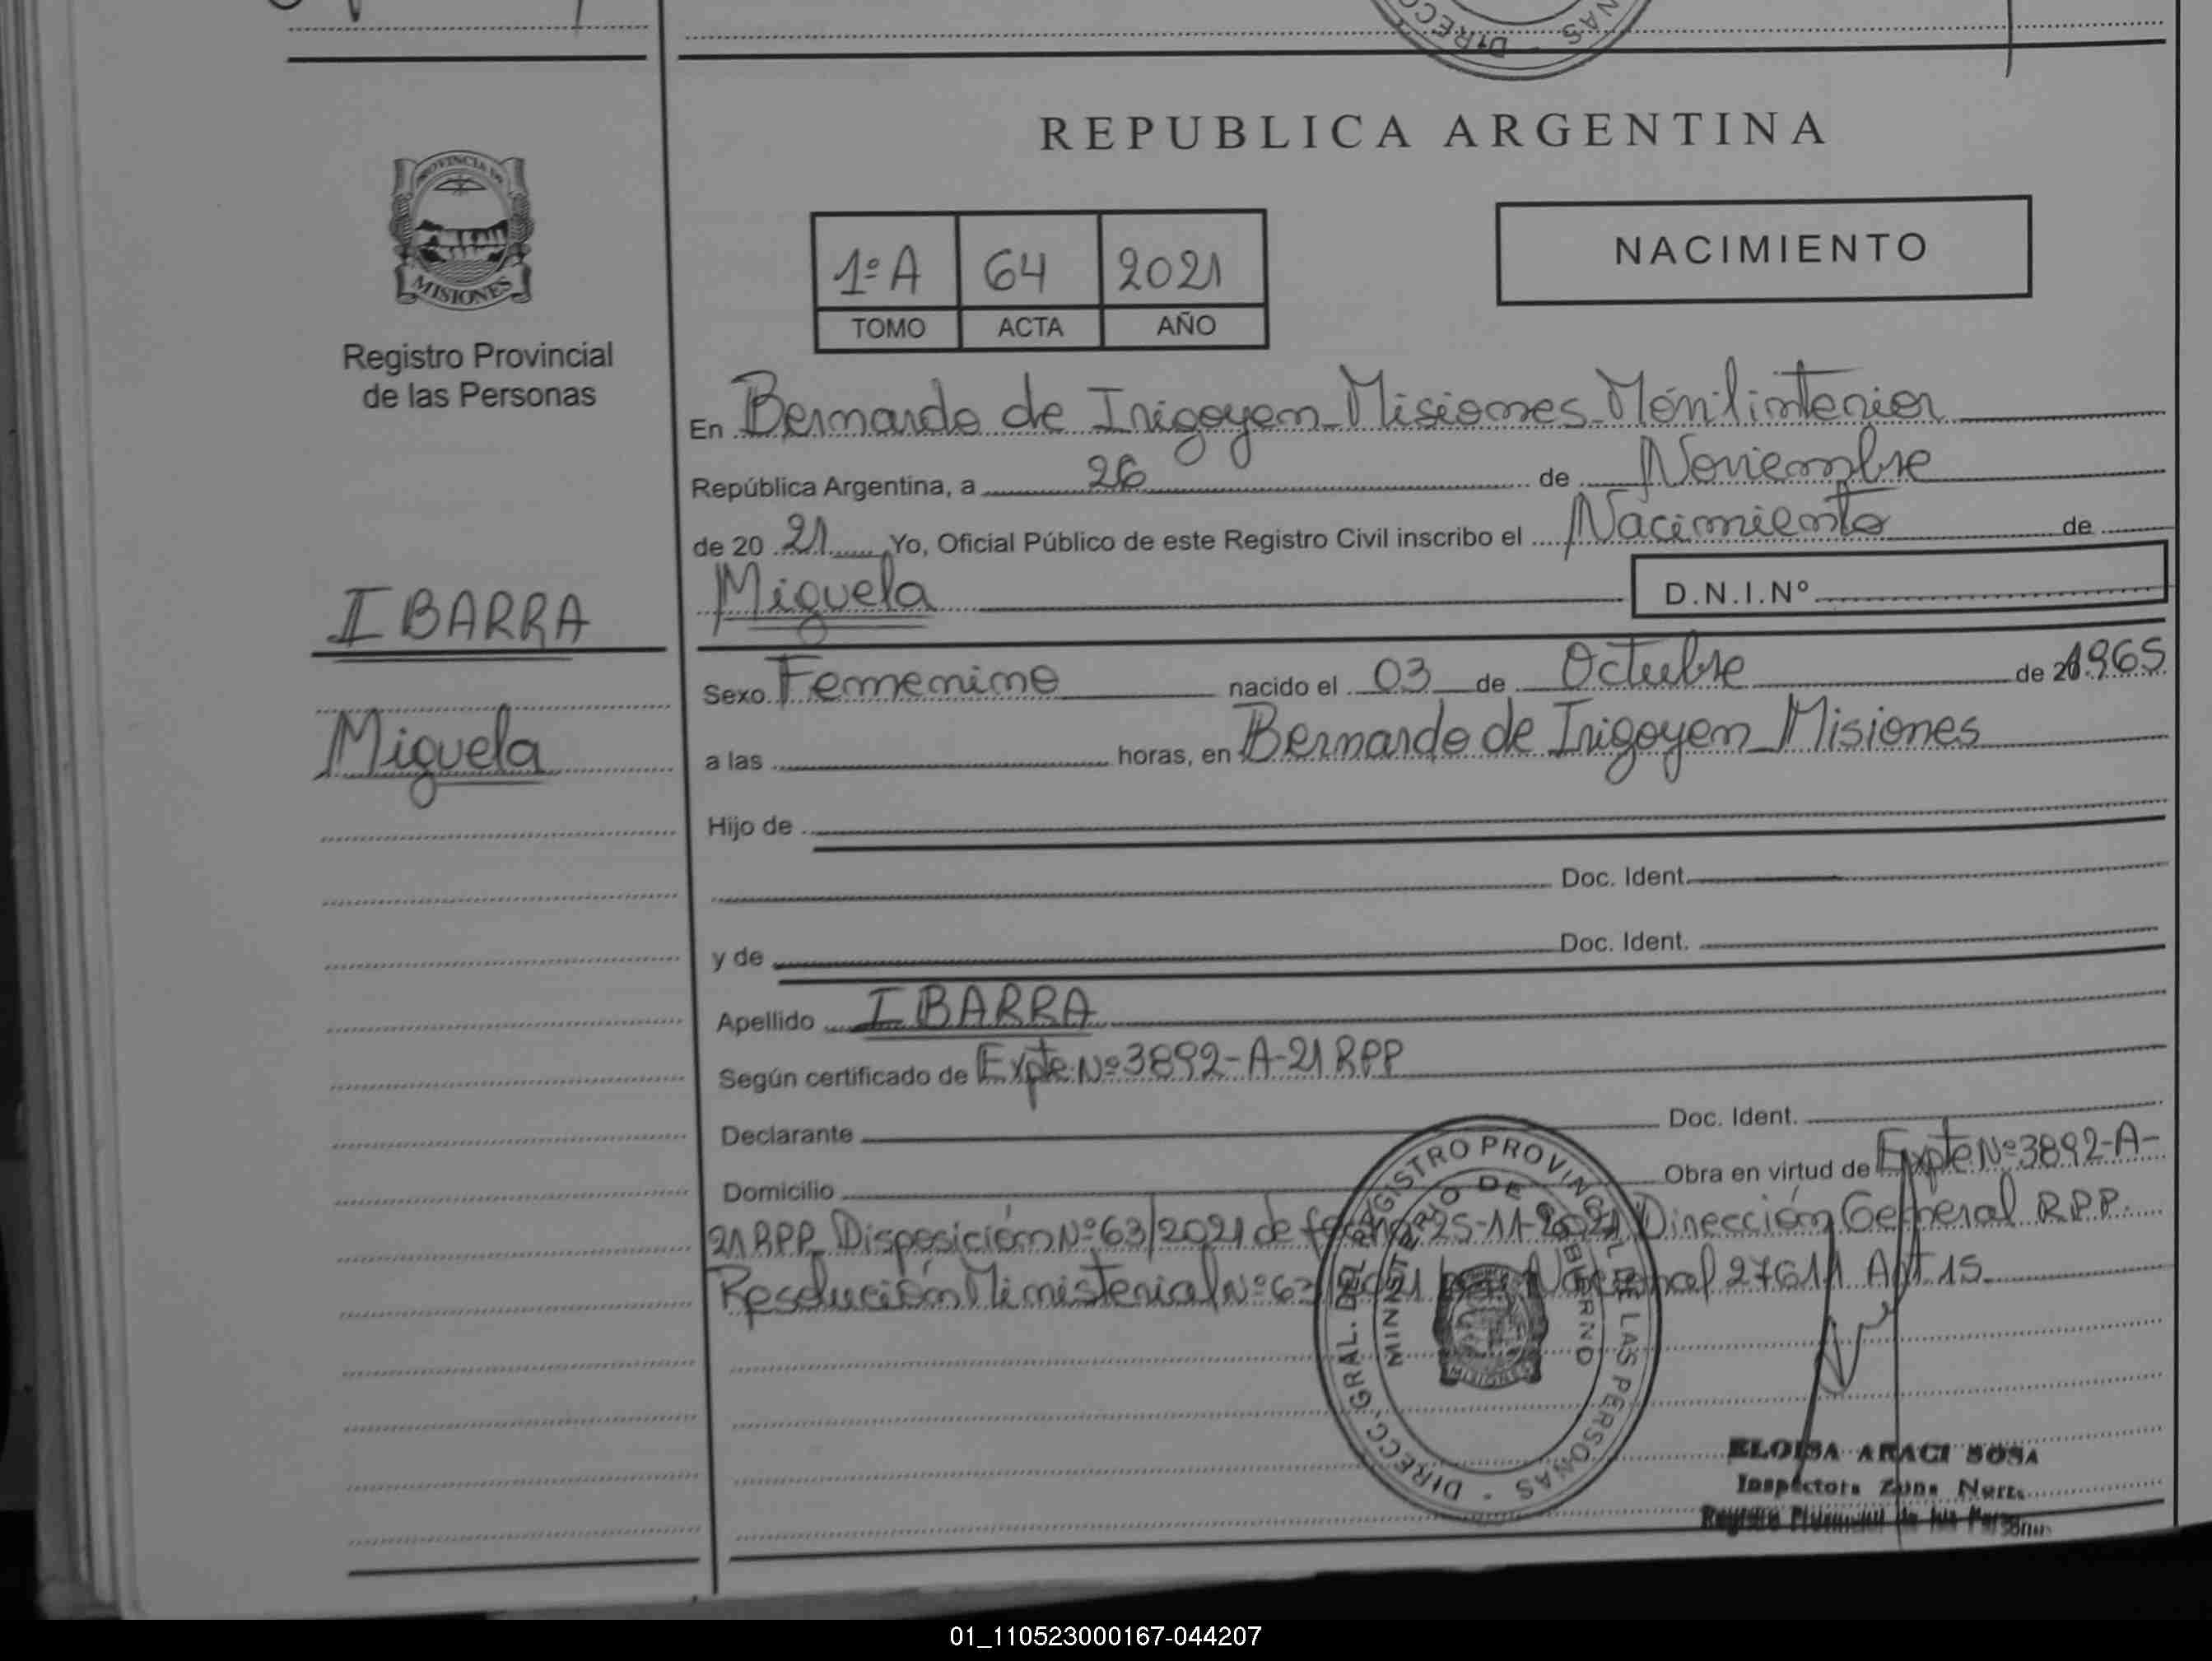 REPUBLICA ARGENTINA
PROVINCIA DE
MISIONES
Registro Provincial
de las Personas
1º A 64 2021
TOMO ACTA AÑO
NACIMIENTO
En Bernardo de Irigoyen Misiones
República Argentina, a 26 de Noviembre
de 20 21 Yo, Oficial Público de este Registro Civil inscribo el Nacimiento de
Miguela D.N.I.Nº
IBARRA
Miguela
Sexo Femenino nacido el 03 de Octubre de 20 1965
a las horas, en Bernardo de Irigoyen Misiones
Hijo de
Doc. Ident.
y de Doc. Ident.
Apellido IBARRA
Según certificado de Expte Nº 3892-A-21 RPP
Declarante Doc. Ident.
Domicilio Obra en virtud de Expte Nº 3892-A-
21 RPP Disposición Nº 63/2021 de fecha 25-11-2021 Dirección General R.P.P.
Resolución Ministerial Nº 63/2021 Nacional 27611 Art 15
DIRECC. GRAL. DEL REGISTRO PROVINCIAL DE LAS PERSONAS
MINISTERIO DE GOBIERNO
MISIONES
ELOISA ARACI SOSA
Inspectora Zona Norte
Registro Provincial de las Personas
01_110523000167-044207